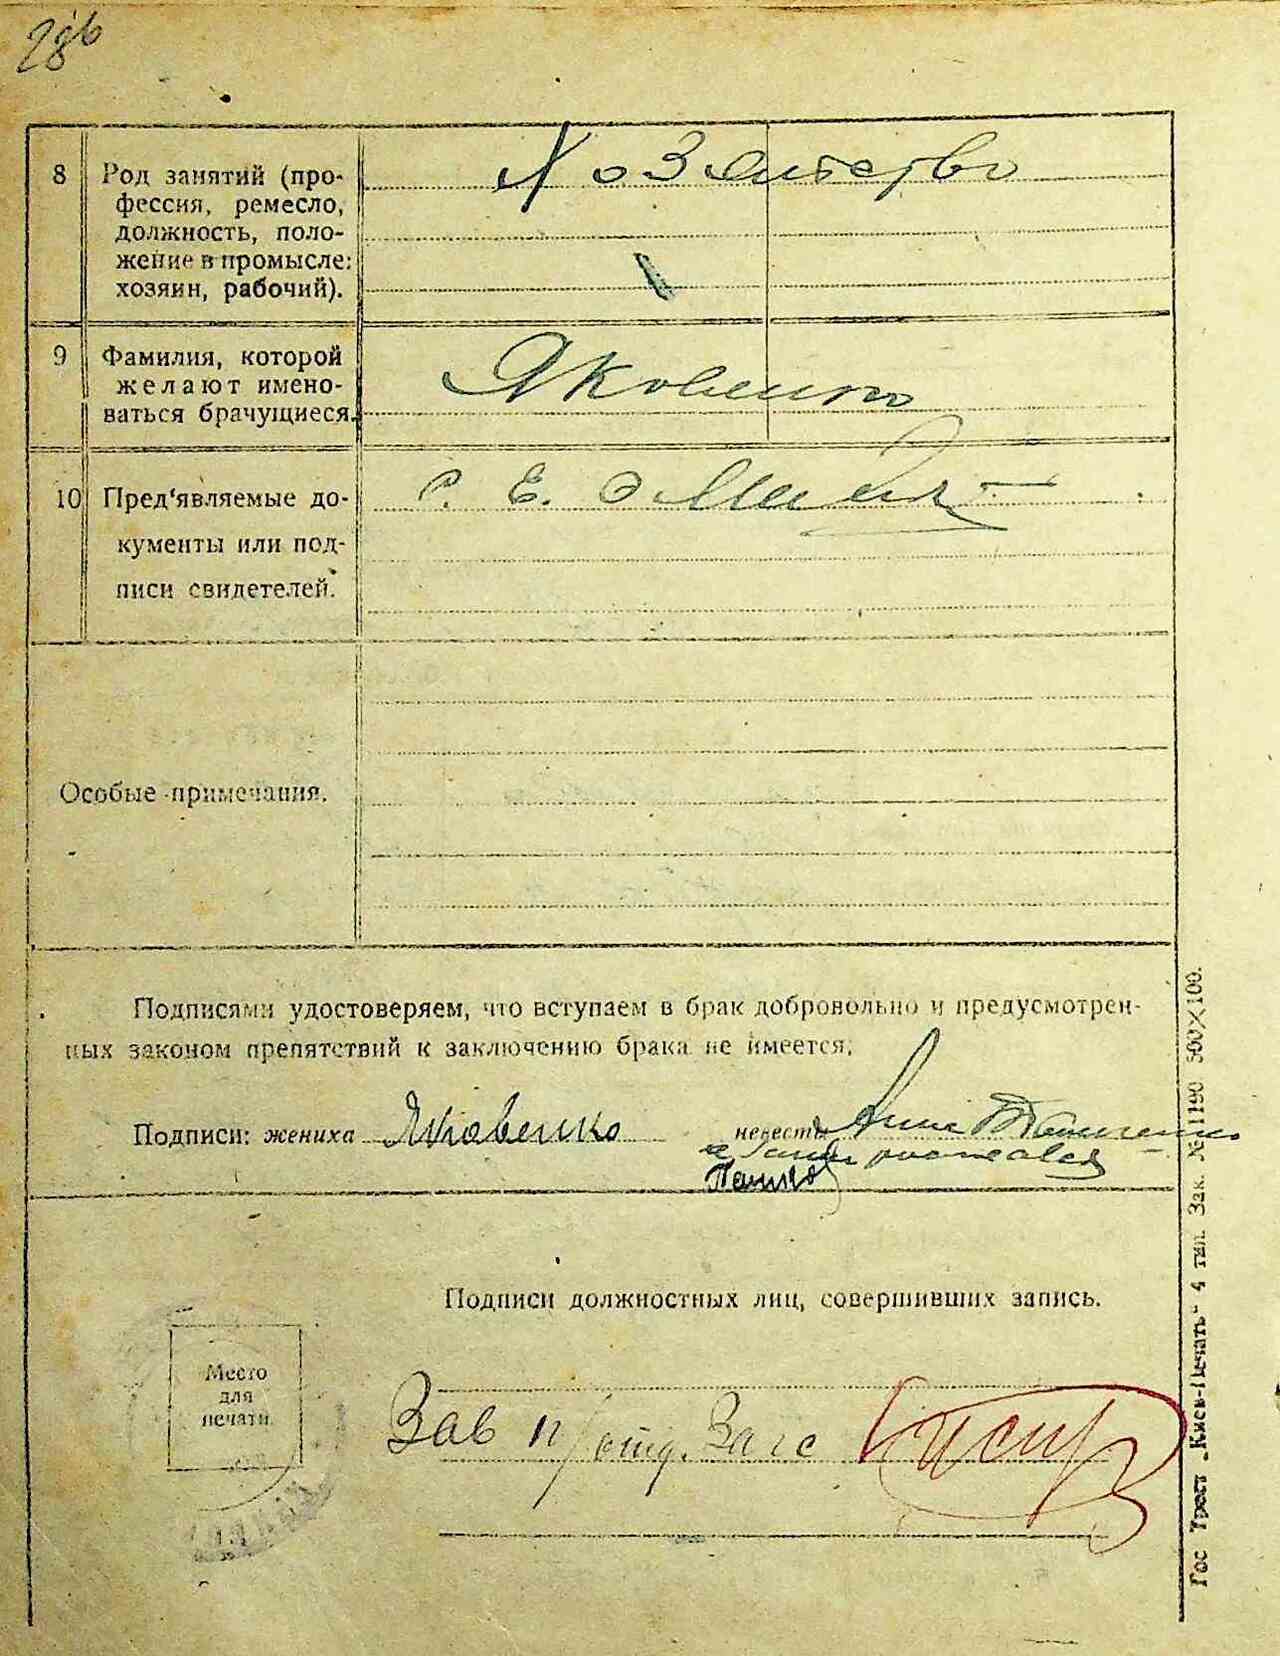 286
8 Род занятий (про-
фессия, ремесло,
должность, поло-
жение в промысле:
хозяин, рабочий).
Хозяйство
9 Фамилия, которой
желают имено-
ваться брачущиеся.
Яковенко
10 Пред'являемые до-
кументы или под-
писи свидетелей.
Особые примечания.
Подписями удостоверяем, что вступаем в брак добровольно и предусмотрен-
ных законом препятствий к заключению брака не имеется:
Подписи: жениха Яковенко невесты Анна
Подписи должностных лиц, совершивших запись.
Место
для
печати
Зав п/отд. Загс
Гос Трест „Киев-Печать" 4 тип. Зак. № 1190 500×100.